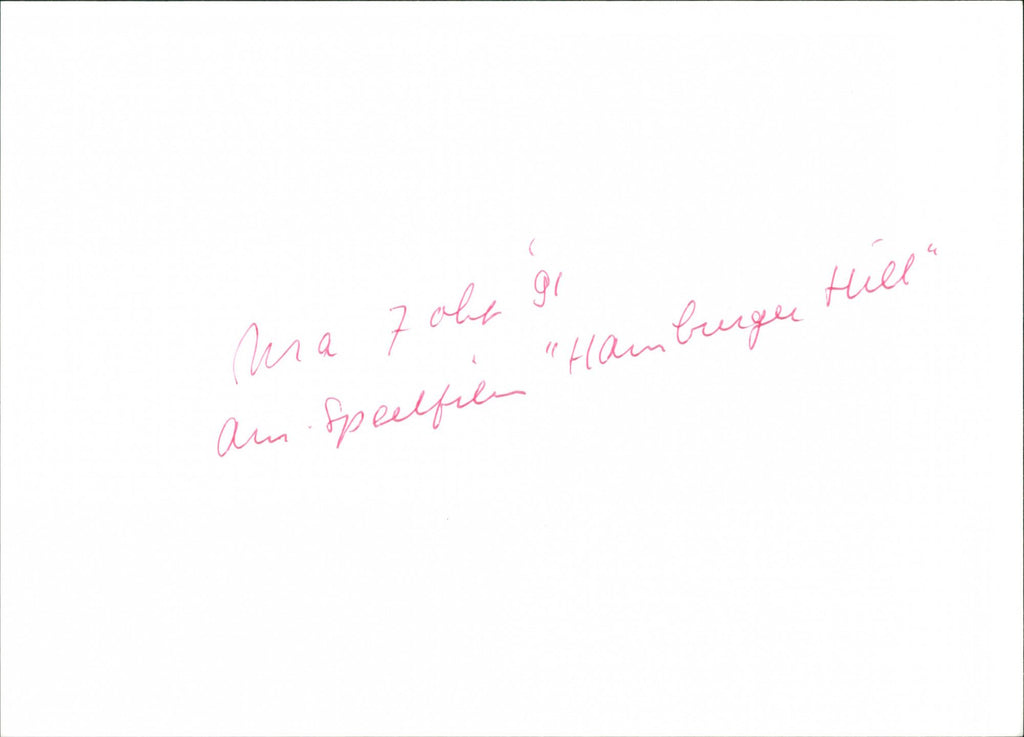 Ma 7 okt '91
am. Speelfilm "Hamburger Hill"